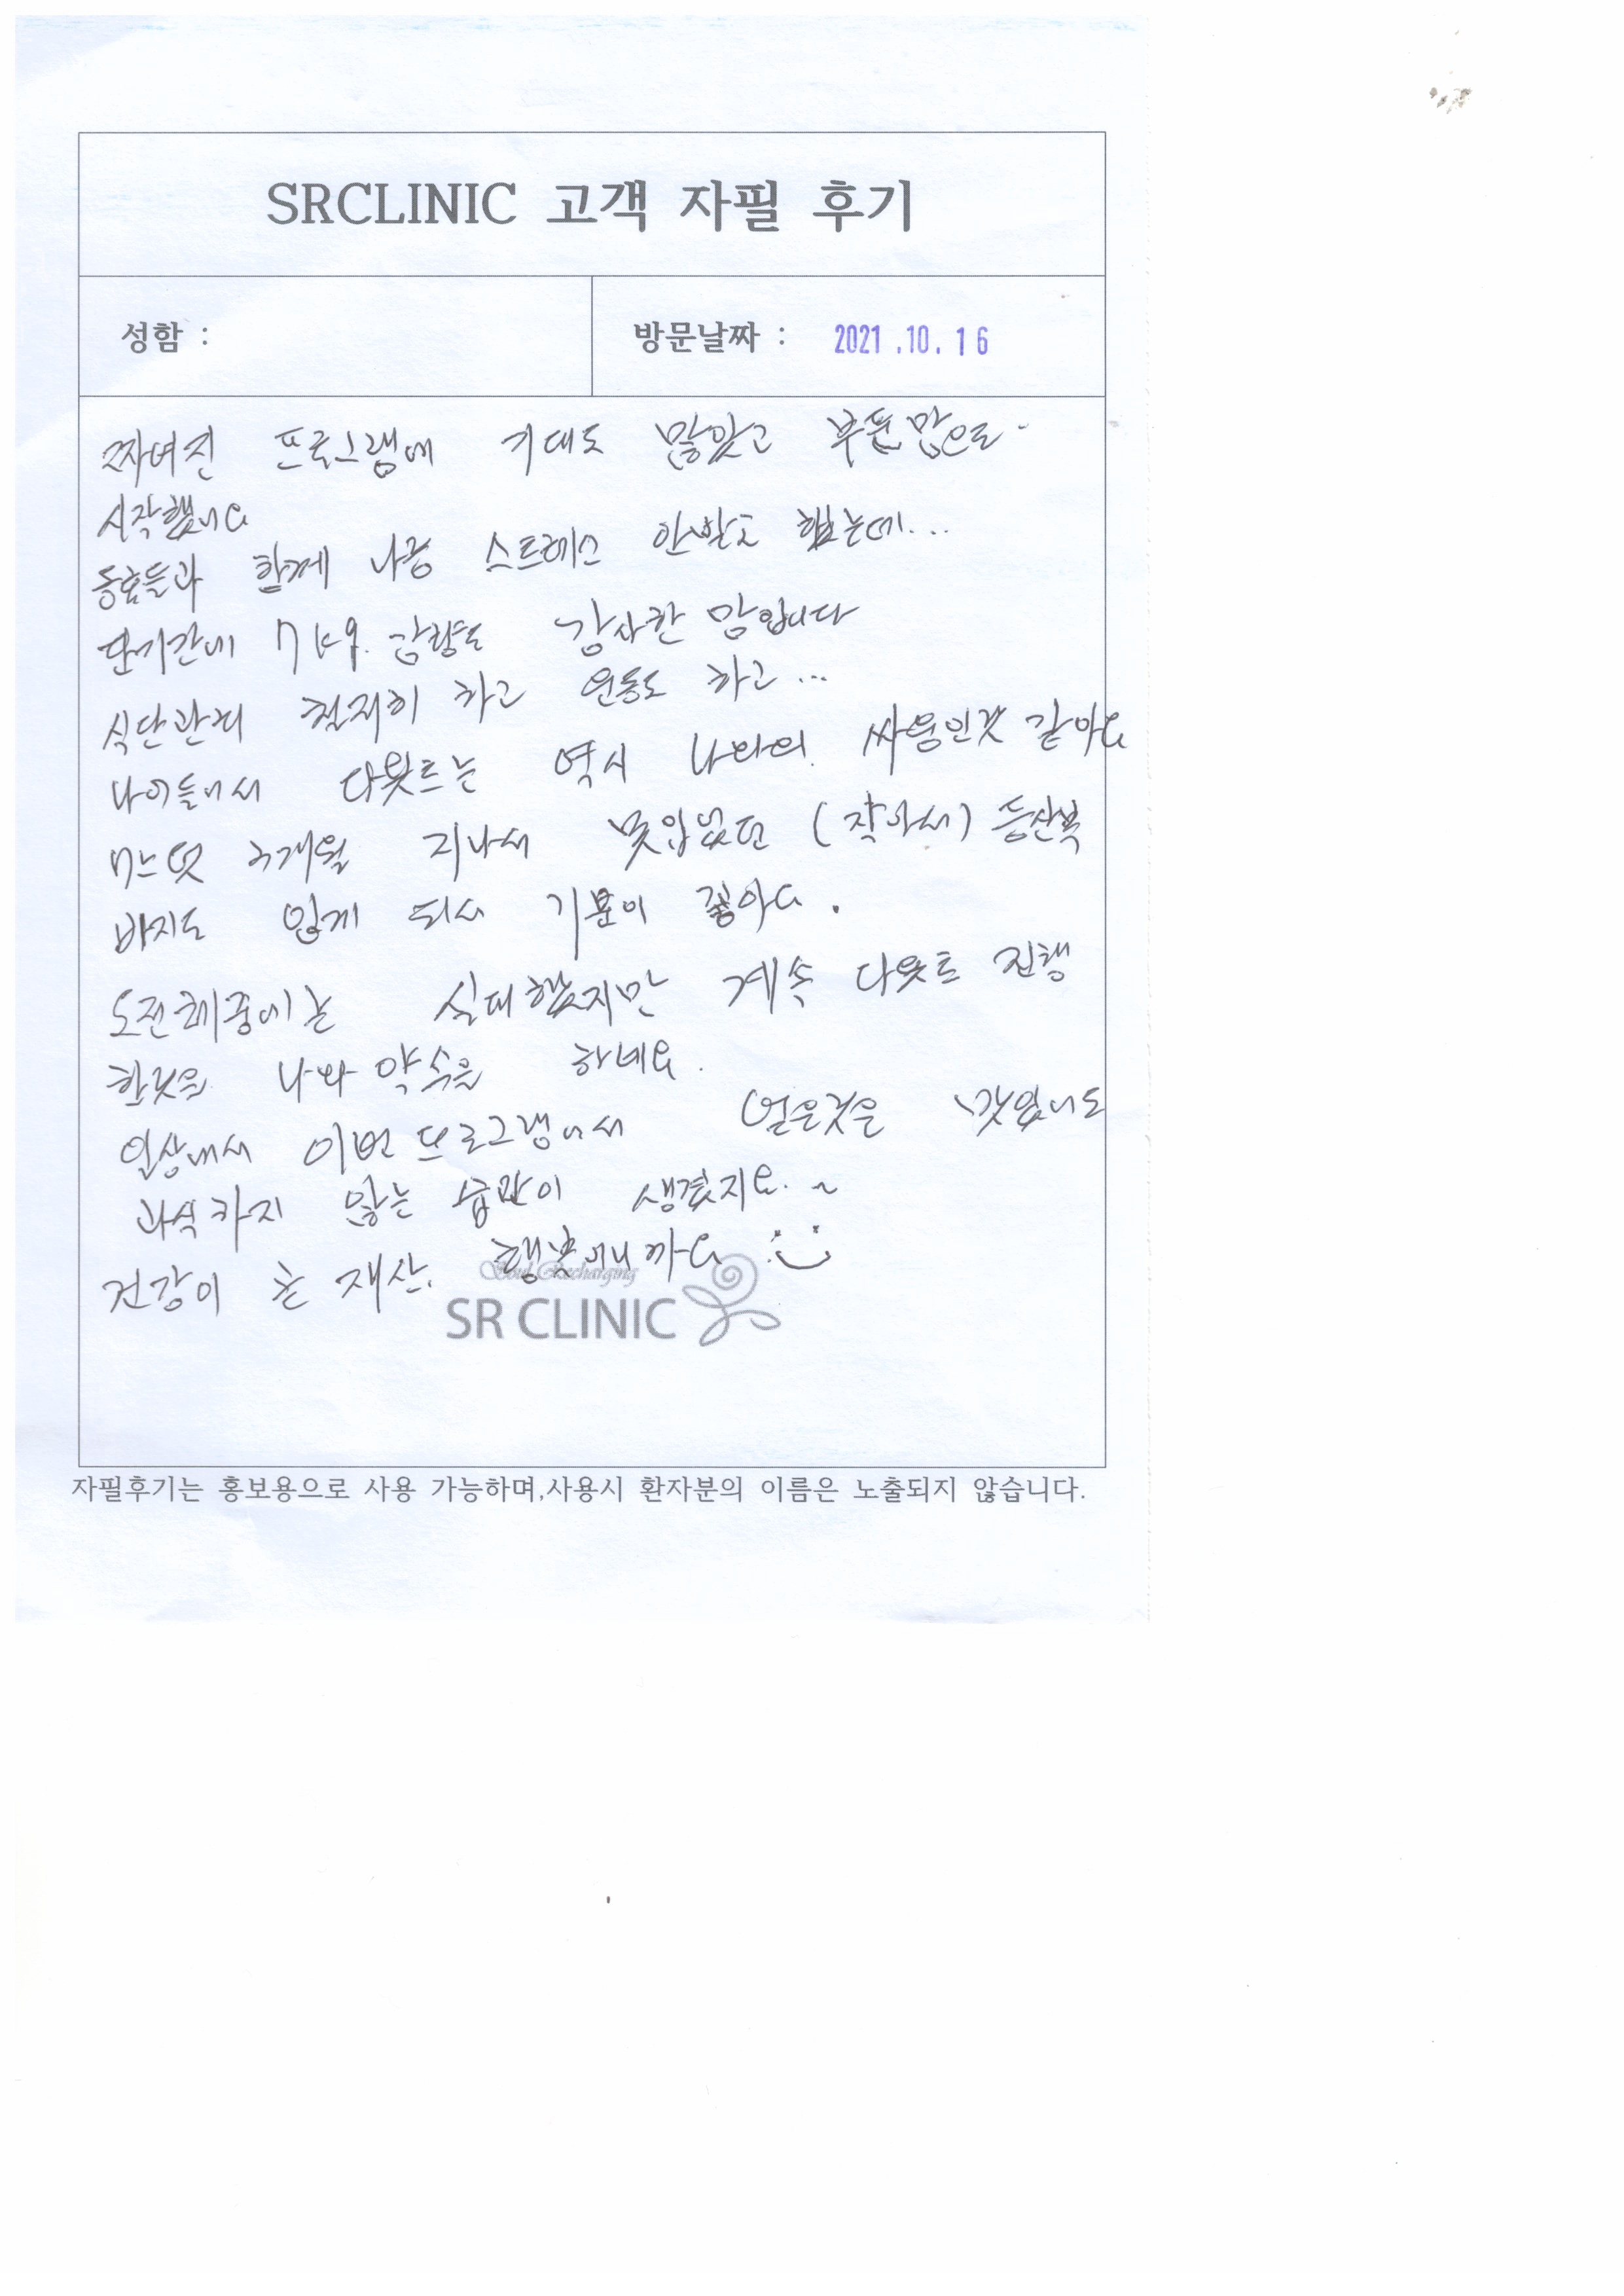 SRCLINIC 고객 자필 후기
성함 :
방문날짜 : 2021.10.16
짜여진 프로그램에 기대도 많았고 부푼맘으로
시작했어요
동료들과 함께 나름 스트레스 안받고 했는데...
단기간에 7kg. 감량도 감사한 맘입니다
식단관리 철저히 하고 운동도 하고...
나이들어서 다욧트는 역시 나와의 싸움인것 같아요
어느덧 3개월 지나서 못입었던 (작아서) 등산복
바지도 입게 되서 기분이 좋아요.
도전체중에는 실패했지만 계속 다욧트 진행
한것을 나와 약속을 하네요.
일상에서 이번 프로그램에서 얻은것은 맛있어도
과식하지 않는 습관이 생겼지요.~
건강이 큰 재산. 행복이니까요
Soul Recharging
SR CLINIC
자필후기는 홍보용으로 사용 가능하며,사용시 환자분의 이름은 노출되지 않습니다.